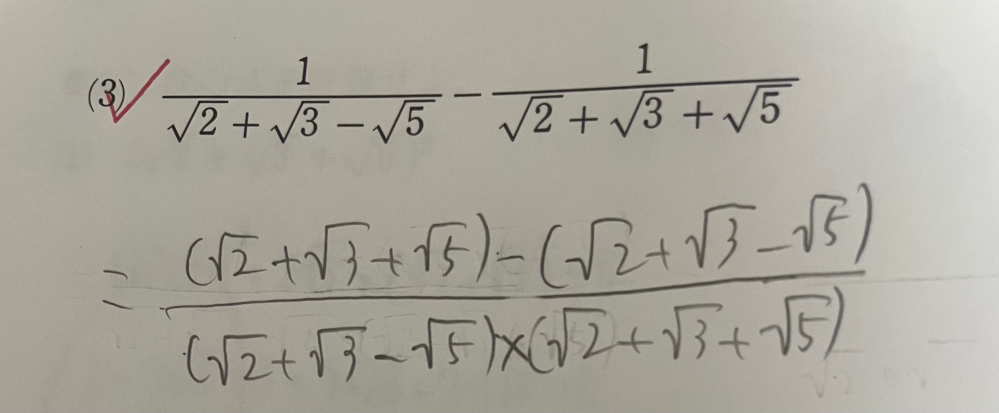 (3) 1/(√2 + √3 − √5) − 1/(√2 + √3 + √5)
= ((√2 + √3 + √5) − (√2 + √3 − √5))/((√2 + √3 − √5) × (√2 + √3 + √5))